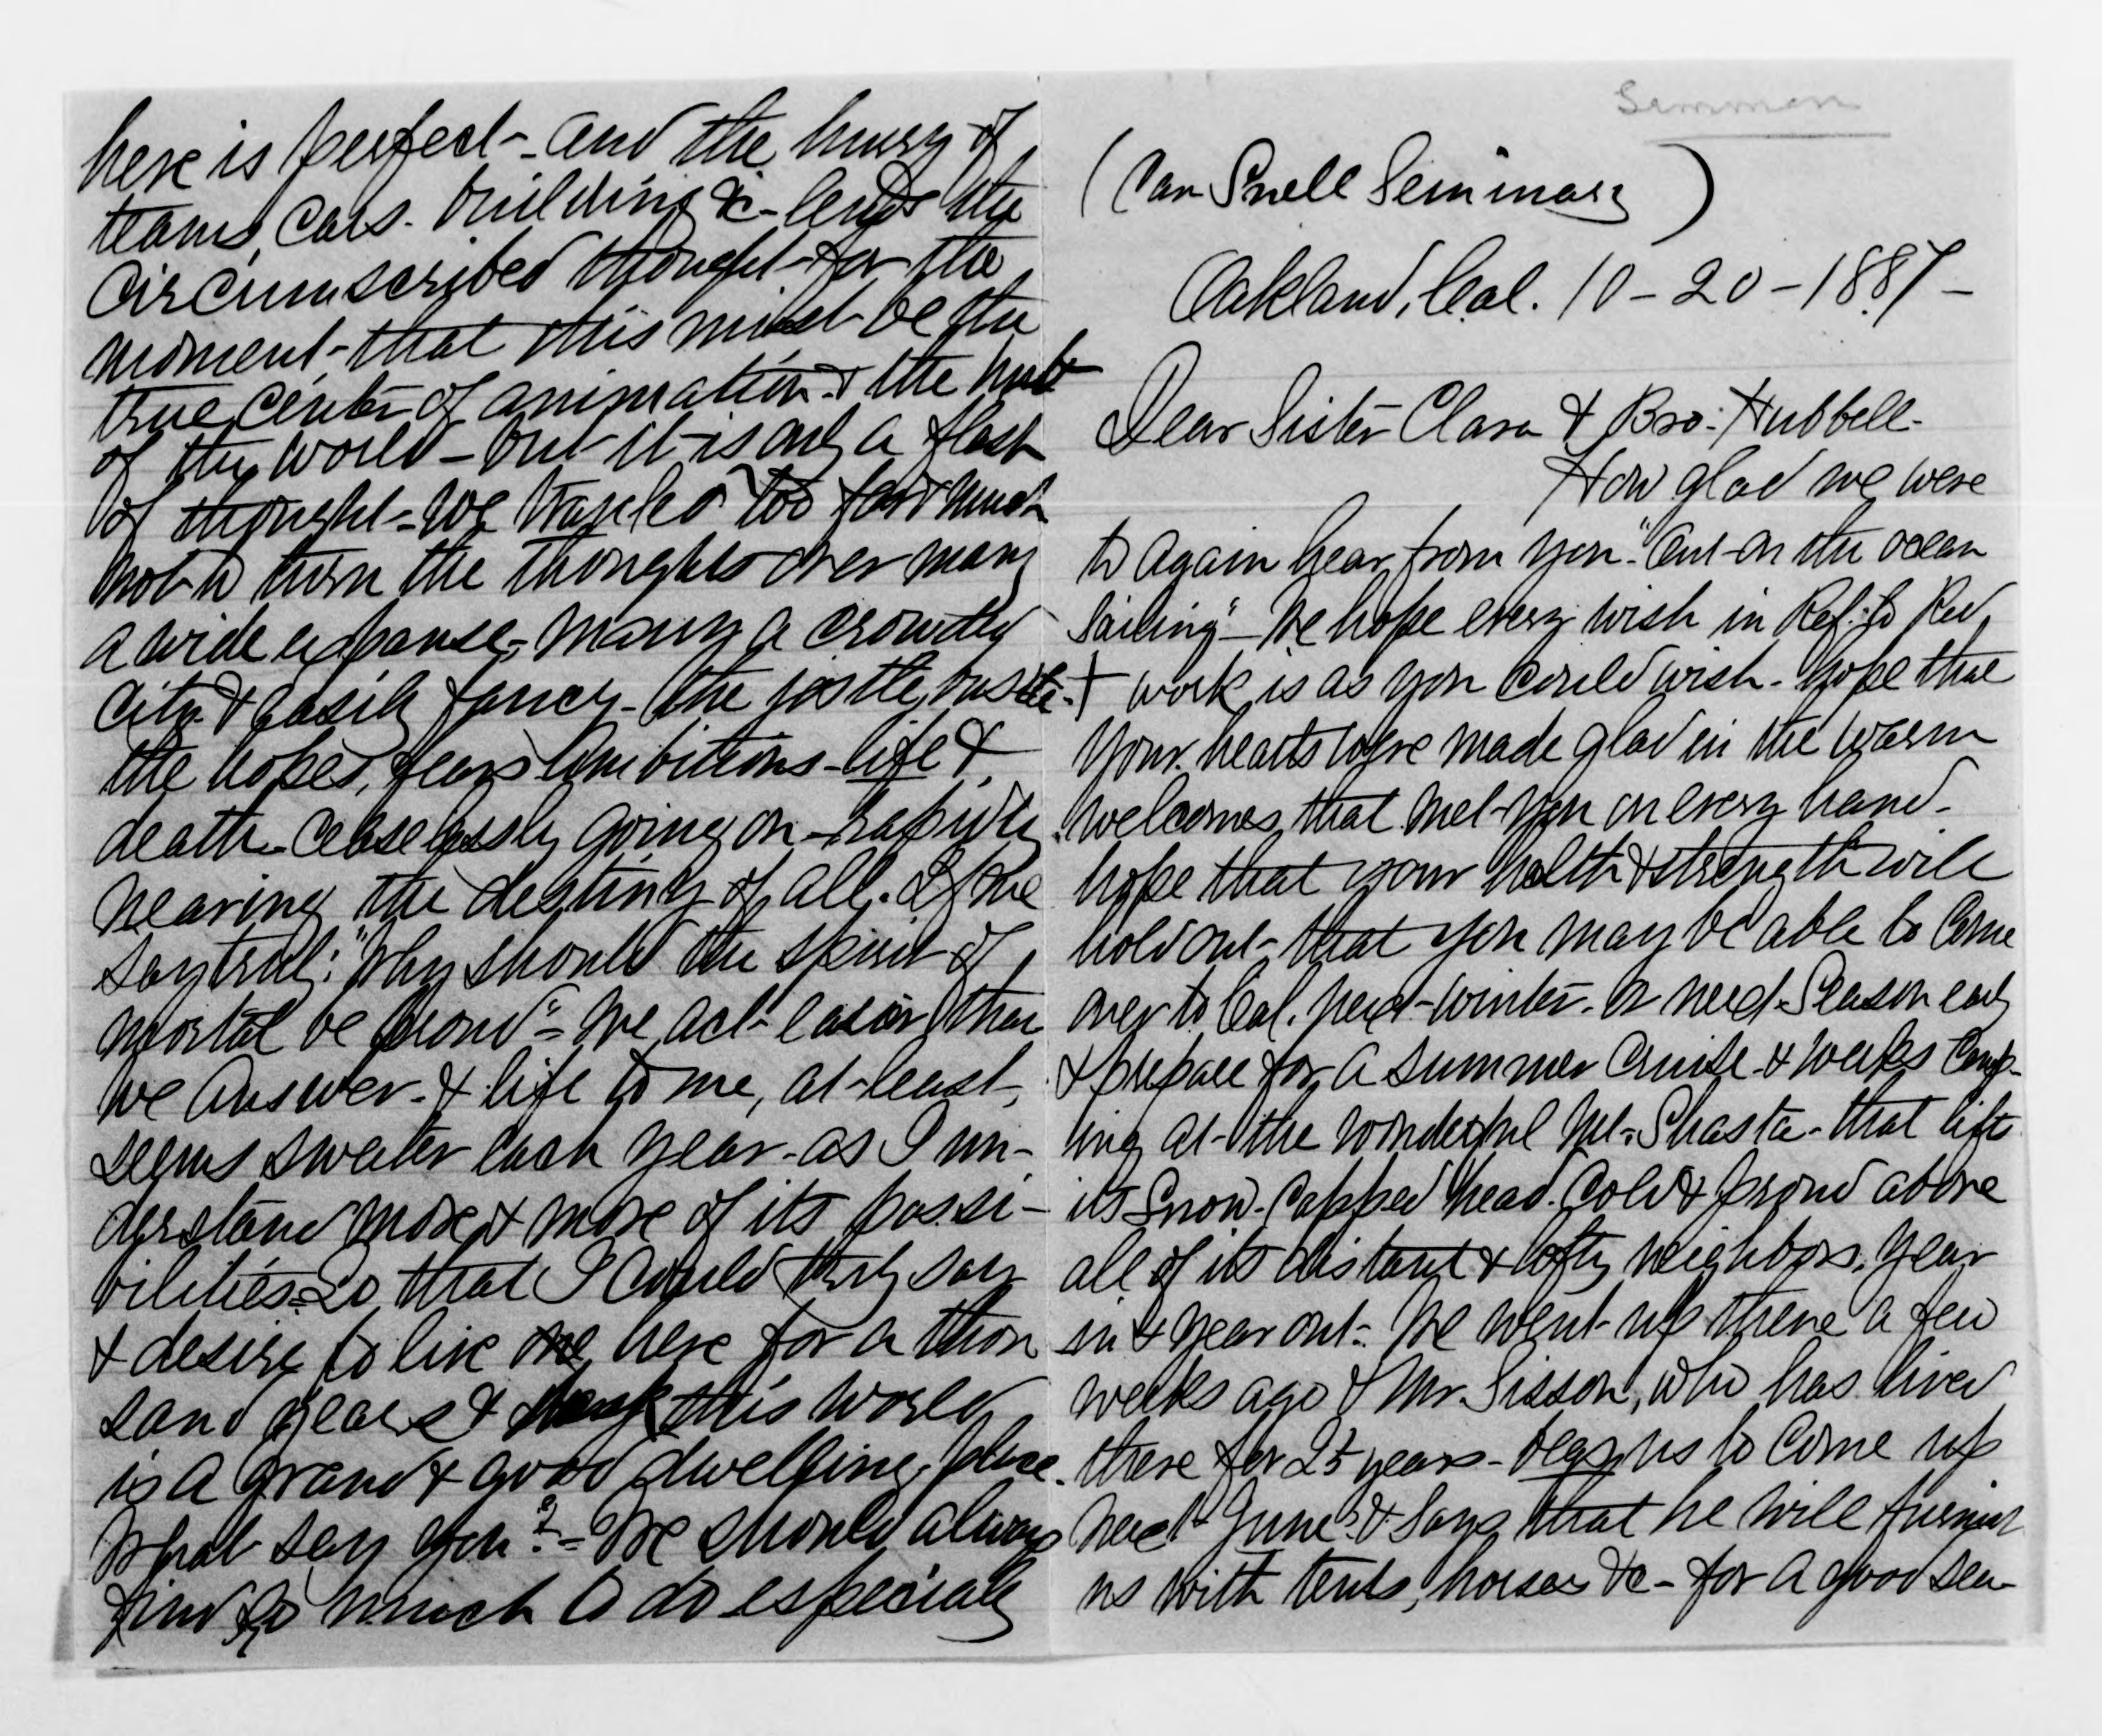 here is perfect - and the hurry of
teams, cars. building &c - lends the
circumscribed thought - for the
moment - that this must be the
true center of animation & the hub
of the world - but it is only a flash
of thought = We traveled too far & much
not to turn the thoughts over many
a wide expanse, many a crowded
city & easily fancy - the jostle, bustle -
the hopes, fears ambitions - life &
death - ceaselessly going on - rapidly
nearing the destiny of all. If we
say trul: "Why should the spirit of
mortal be proud" = We act easier than
we answer - & life to me, at least,
seems sweeter each year - as I un-
derstand more & more of its possi-
bilities = So that I could truly say
& desire to live here for a thou
sand years & this world
is a grand & good dwelling place.
What say you? = We should always
find so much to do especialy
Simmen
(Van Snell Seminary)
Oakland, Cal. 10 - 20 - 1887 -
Dear Sister Clara & Bro: Hubbell -
How glad we were
to again hear from you - "out on the ocean
sailing" - We hope every wish in Ref: to Rev,
& work is as you could wish - hope that
your hearts were made glad in the warm
welcomes that met you on every hand -
hope that your health & strength will
hold out - that you may be able to come
over to Cal. next winter - or next Season early
& prepare for a summer cruise - & weeks Camp-
ing at the wonderful Mt. Shasta - that lifts
its Snow-Capped head. Cold & proud above
all of its distant & lofty neighbors, year
in & year out = We went up there a few
weeks ago & Mr. Sisson, who has lived
there for 25 years - begs us to come up
next June & says that he will furnish
us with tents, horses &c - for a good sea-